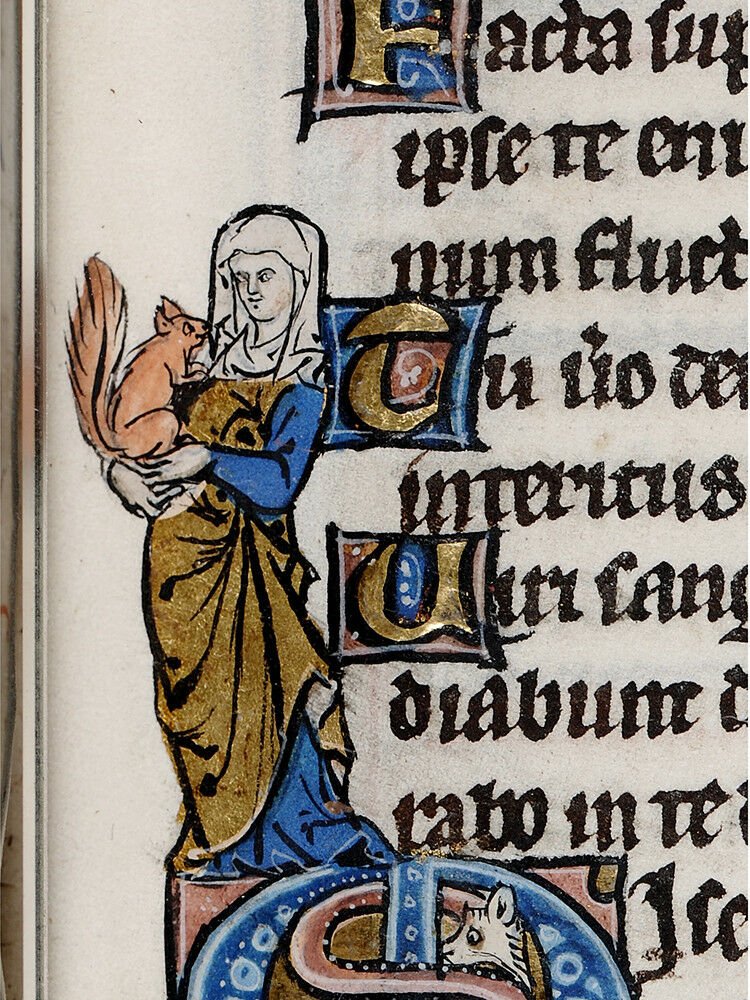 Iacta sup
ipse te enu
num fluct
Tu ũo de
interitus
Uiri sang
diabunt d
rabo in te d
Mise